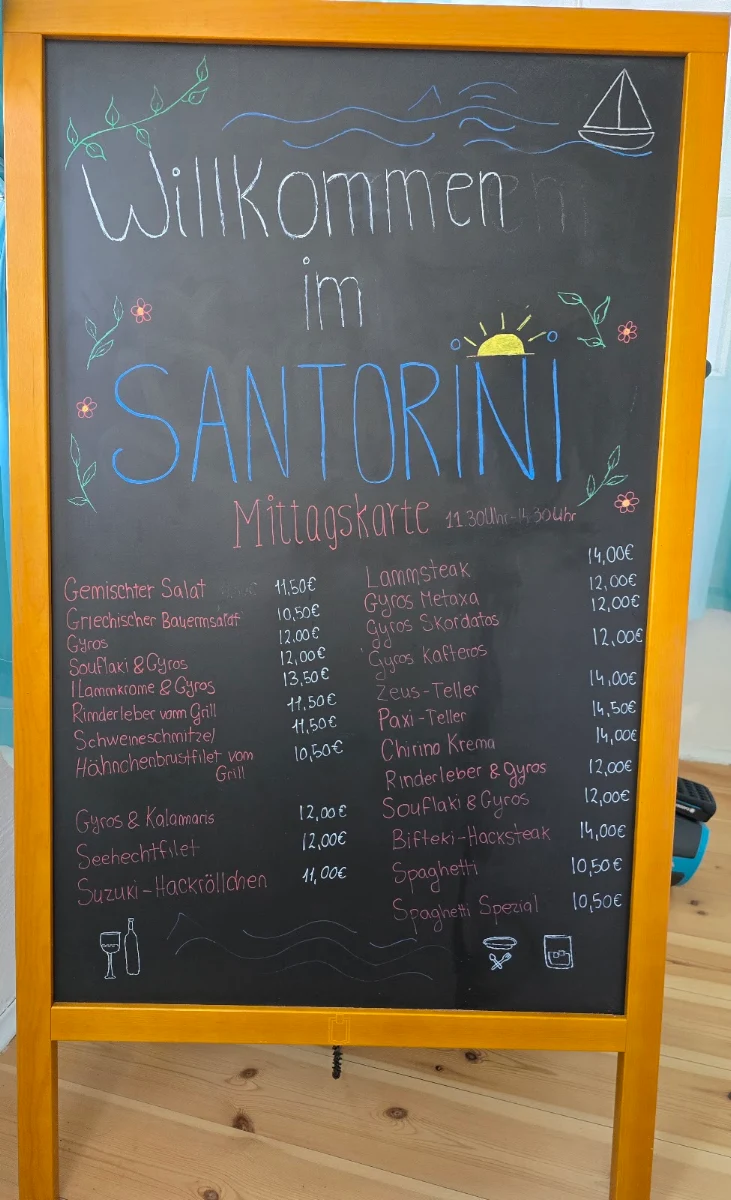 Willkommen
im
SANTORINI
Mittagskarte 11.30Uhr-14.30Uhr
Gemischter Salat 11,50€
Griechischer Bauernsalat 10,50€
Gyros 12,00€
Souflaki & Gyros 12,00€
1 Lammkrome & Gyros 13,50€
Rinderleber vomn Grill 11,50€
Schweineschmitzel 11,50€
Hähnchenbrustfilet vom 10,50€
Grill
Gyros & Kalamaris 12,00€
Seehechtfilet 12,00€
Suzuki-Hackröllchen 11,00€
Lammsteak 14,00€
Gyros Metaxa 12,00€
Gyros Skordatos 12,00€
Gyros Kafteros 12,00€
Zeus-Teller 14,00€
Paxi-Teller 14,50€
Chirino Krema 14,00€
Rinderleber & Gyros 12,00€
Souflaki & Gyros 12,00€
Bifteki-Hacksteak 14,00€
Spaghetti 10,50€
Spaghetti Spezial 10,50€